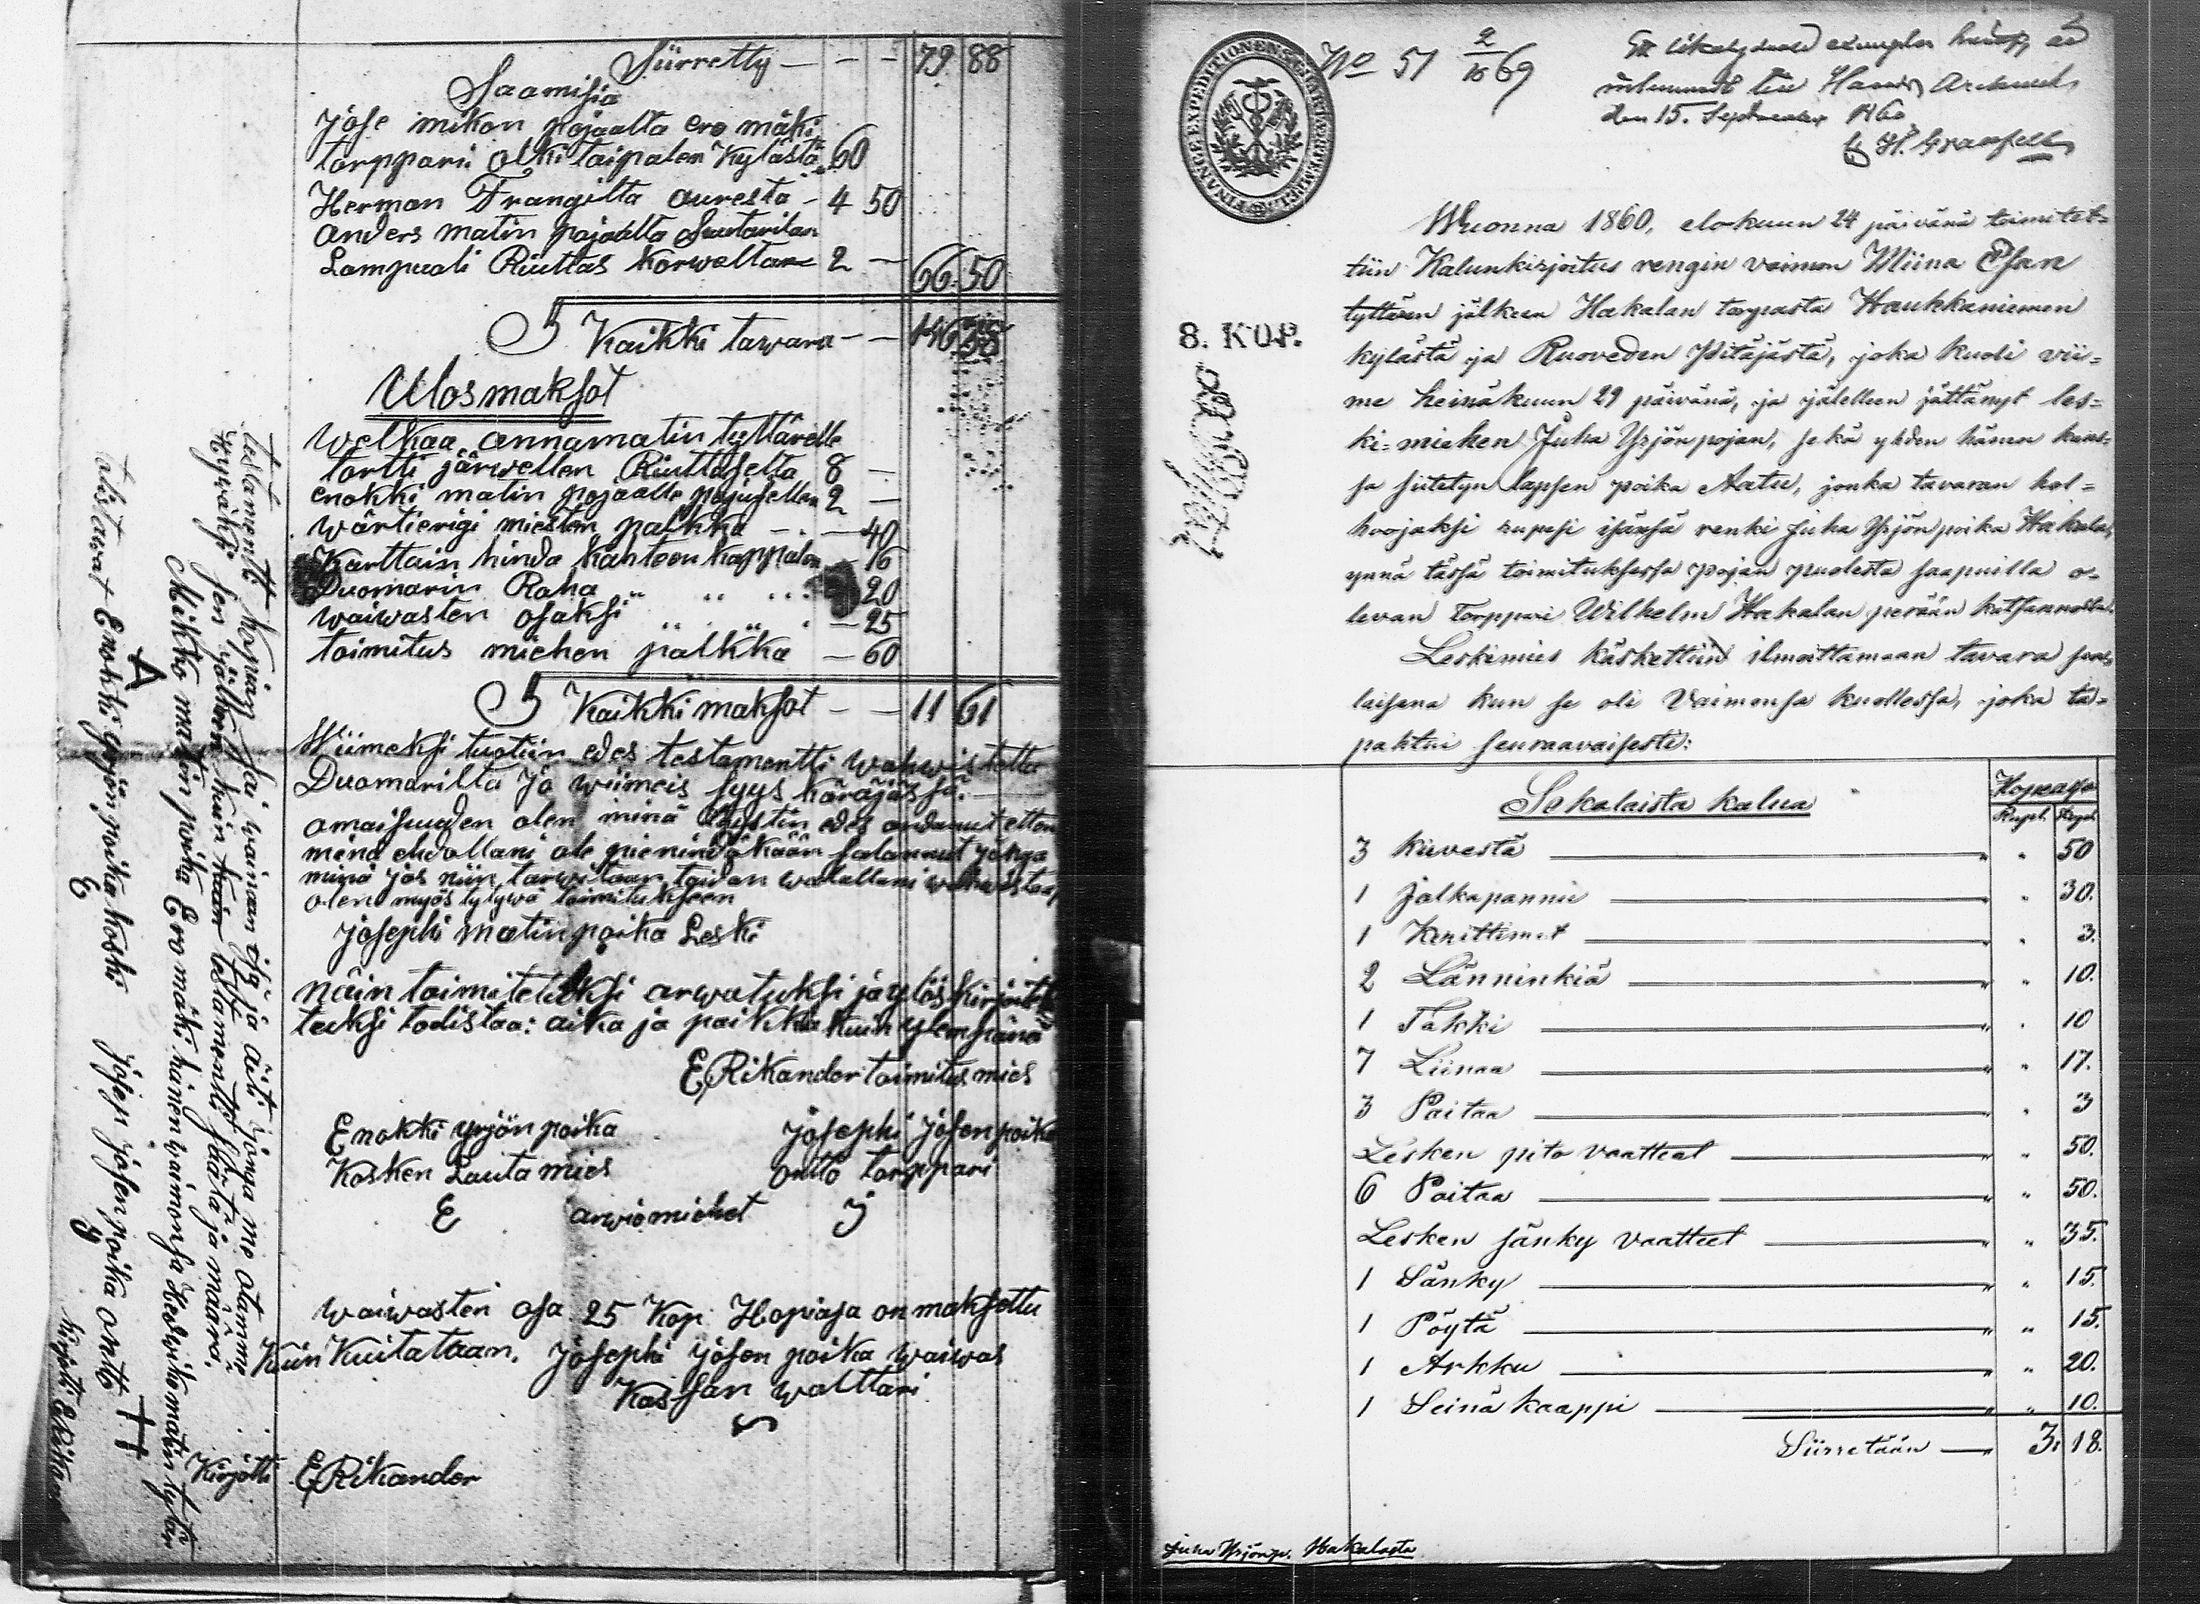 Siirretty — — — 79 88
Saamisia
Jose mikon pojaalta ero mäki
torppari olkitaipalen kylästä 60
Herman Frangilta auresta — 4 50
anders matin pojaalta Suutarilan
Lampuoti Riuttas korweltane 2 — 66 50
S Kaikki tawara — — 146 38
Ulosmaksot
Welkaa annamatin tyttärelle
tortti järwellen Riuttasella 8 —
enokki matin pojaalle pajusellen 2 —
wärtierigi miesten palkka — — 40
Karttain hinda kahteen kappalen 16
Duomarin Raha „ „ „ 20
waiwasten osaksi „ „ — 25
toimitus miehen palkka — 60
S Kaikki maksot — — 11 61
Wiimeksi tuotiin edes testamentti wahwistettu
Duomarilta jo wiimeis syys käräjäs sä.
omaisuuden olen minä edes andanut etten
minä ehdollani ole pienindäkään salannut jonga
minä jos niin tarwitaan taidan walallani wahwistaa
olen myös tytywä toimitukseen
Josephi matinpoika Leski
näin toimitetuksi arwatuksi ja ylöskirjoitet
tuksi todistaa: aika ja paikka kuin ylempänä
E Rikander toimitus mies
Enokki yrjön poika Josephi Josen poika
Kosken Lautamies ontto torppari
E arwiomiehet J
waiwasten osa 25 Kop Hopiasa on maksettu
Kuin Kuitataan. Josephi Josen poika waiwas
Kassan walttari
Kirjotti E Rikander
testamentti kopian sai wainan isä ja äiti jonga me otamme
hywäksi sen jälken kuin testamentti säätä ja määrä,
Mikko matin poika Eromäki hänen waimonsa Hedwikamatin tytär
A
talistawat Enokki yrjön poika koski Josep josenpoika ontto
E J
kirjotti E Rikander
FINANCE EXPEDITIONENS CHARTÆSTEMPEL
No 51 2/10 69
Ett likalydande exemplar häraf är
inlemnadt till Härads Archivet
den 15. September 1860
H. Granfelt
8. KOP.
Wuonna 1860, elokuun 24 päivänä toimitet=
tiin Kalunkirjoitus rengin vaimon Miina Esan
tyttären jälkeen Hakalan torpasta Haukkaniemen
kylästä ja Ruoveden Pitäjästä, joka kuoli vii=
me heinäkuun 29 päivänä, ja jälelleen jättänyt les=
ki=miehen Juha Yrjönpojan, sekä yhden hänen kans=
sa siitetyn lapsen poika Aatu, jonka tavaran hol=
hoojaksi rupesi isänsä renki Juha Yrjönpoika Hakala,
ynnä tässä toimituksessa pojan puolesta saapuilla o=
levan Torppari Wilhelm Hakalan perään katsannolla.
Leskimies käskettiin ilmoittamaan tavara sem=
laisena kun se oli Vaimonsa kuollessa, joka ta=
pahtui seuraavaisesti:
Sekalaista kalua Hopeassa
Rupl. Kop.
3 Kiivestä „ „ 50
1 Jalkapannu „ „ 30.
1 Kerittimet „ „ 3.
2 Länninkiä „ „ 10.
1 Takki „ „ 10
7 Liinaa „ „ 17.
3 Paitaa „ „ 3
Lesken pito vaatteet „ „ 50.
6 Paitaa „ „ 50.
Lesken sänky vaatteet „ „ 35.
1 Sänky „ „ 15.
1 Pöytä „ „ 15.
1 Arkku „ „ 20.
1 Seinä kaappi „ „ 10.
Siirretään — „ 3. 18.
Juha Yrjönp. Hakalasta